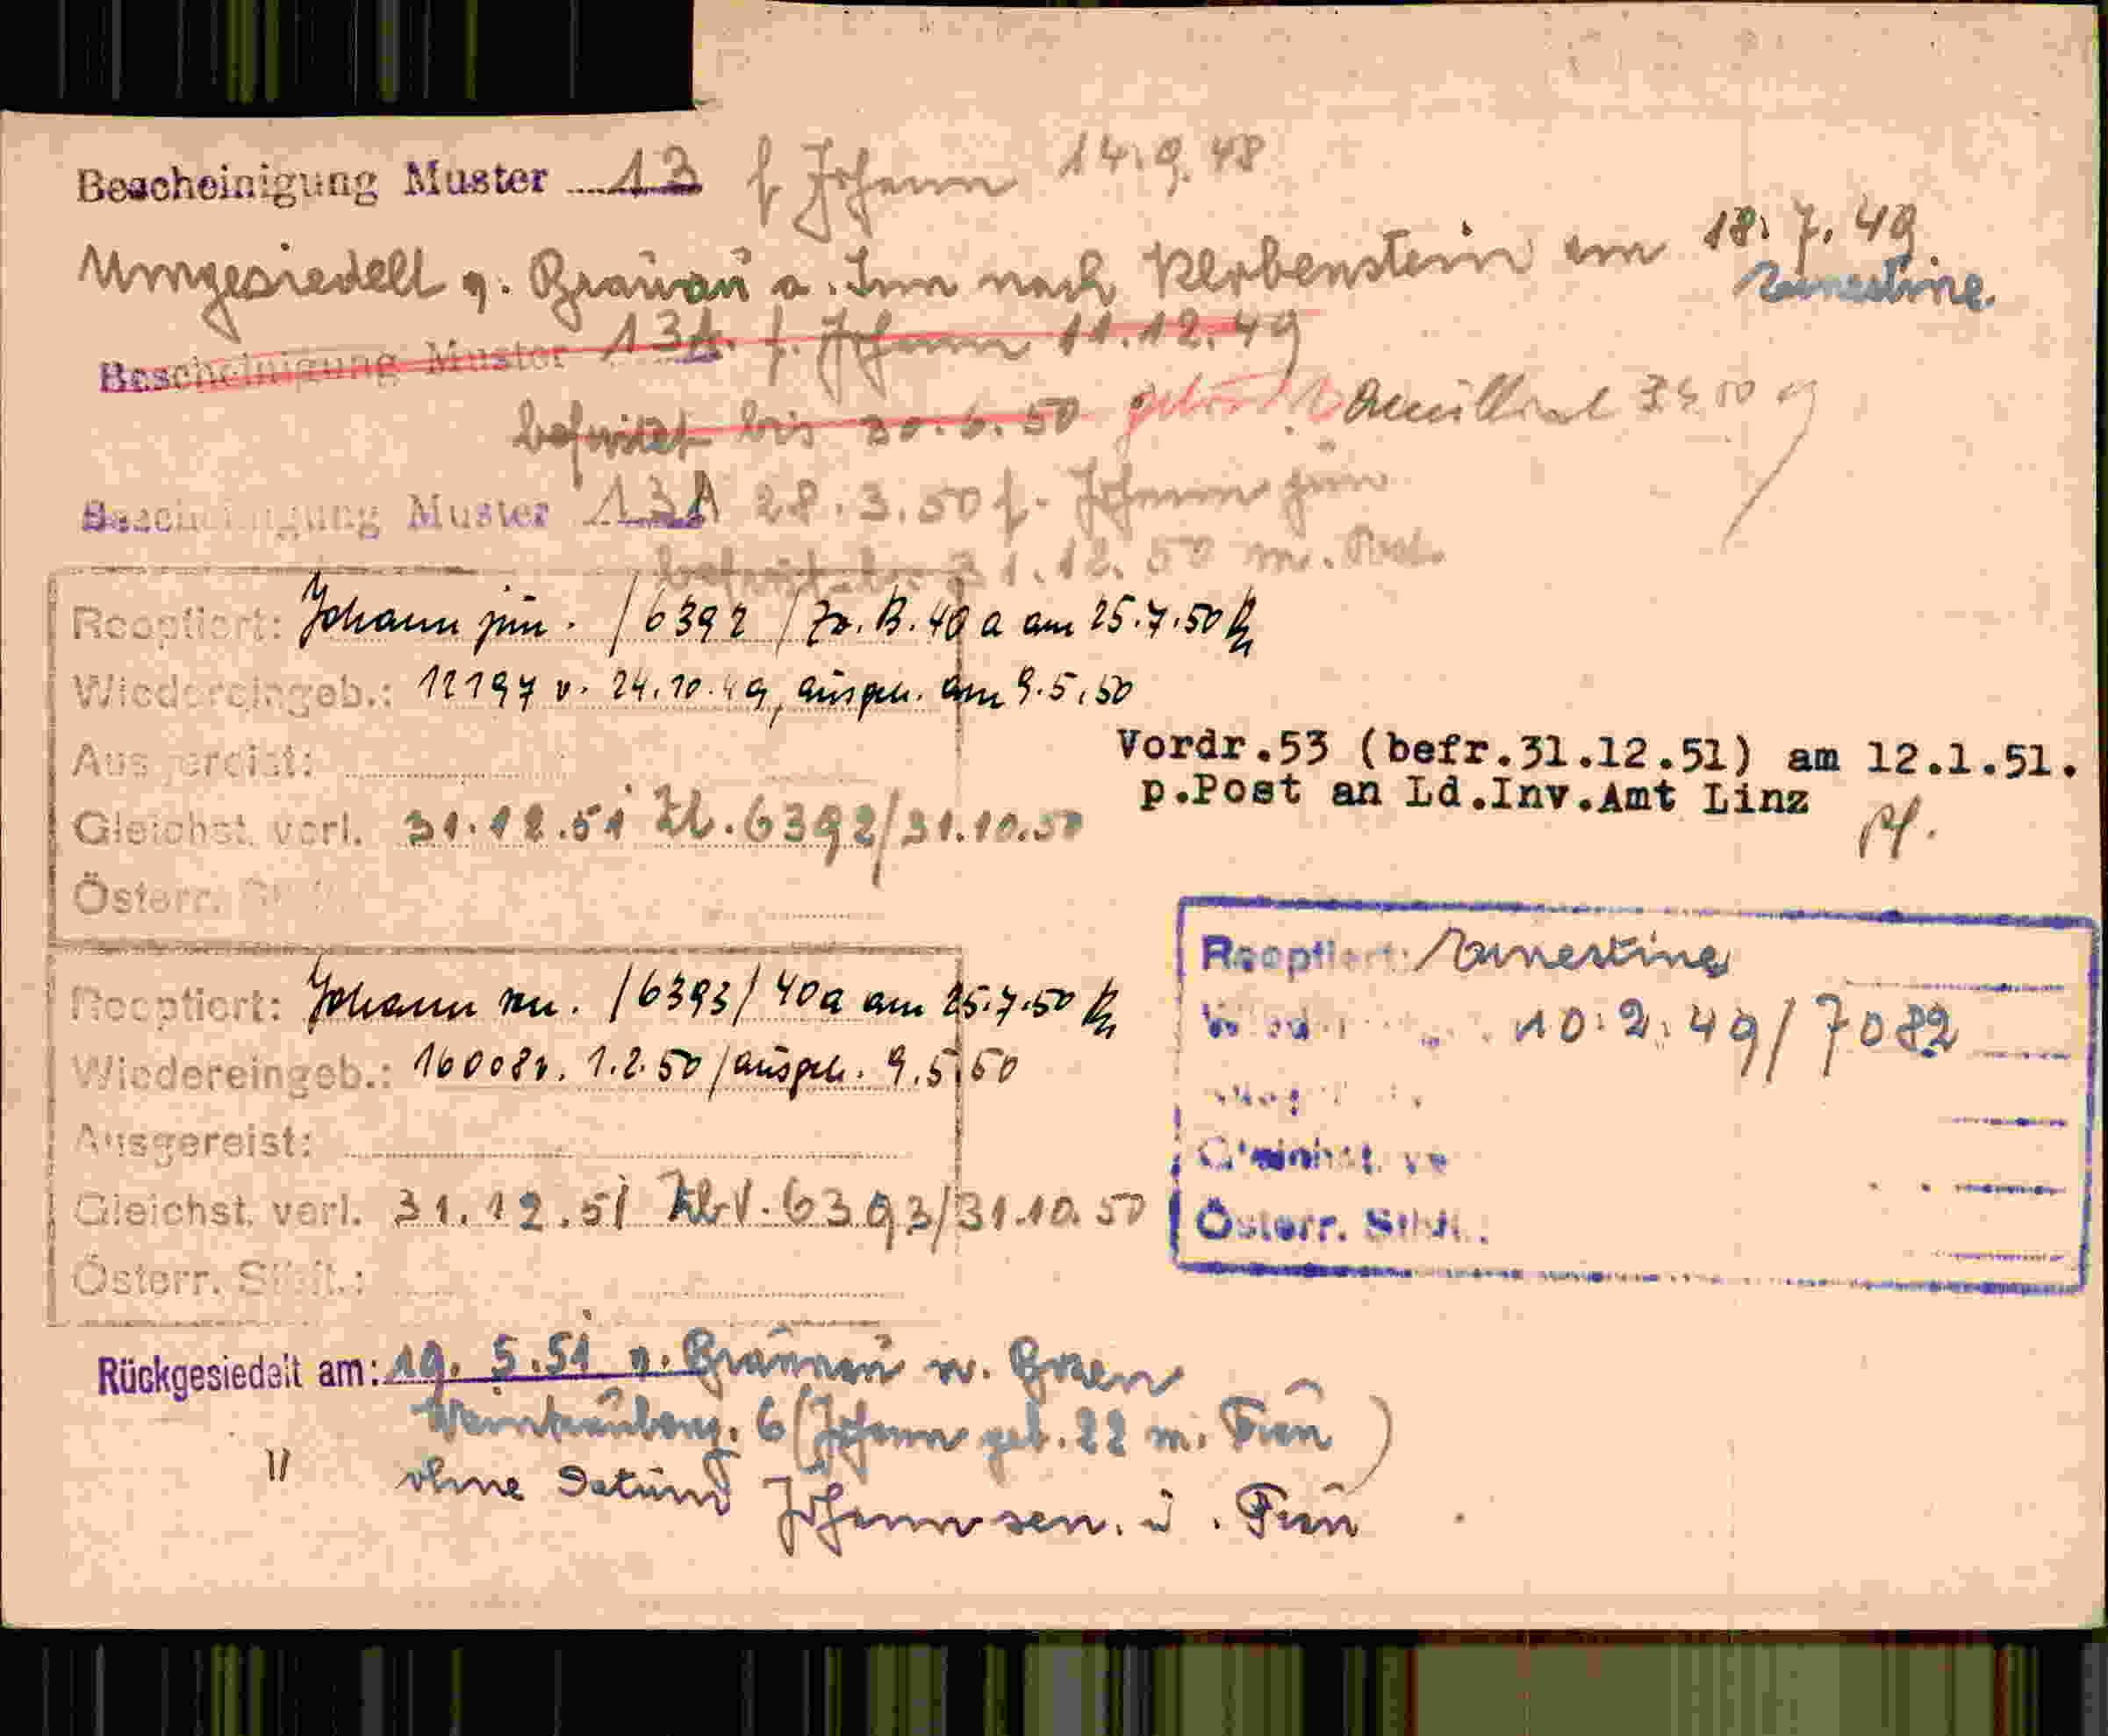 Bescheinigung Muster 13 f. Johann 14.9.48
Umgesiedelt v. Braunau a. Inn nach Klobenstein am 18.7.49
Ernestine
Bescheinigung Muster 13A. f. Johann 11.12.49
befristet bis 30.6.50
Bescheinigung Muster 13A 28.3.50 f. Johann jun
befrist. bis 31.12.50 m. Post.
Reoptiert: Johann jun. /6392 / 40 a am 25.7.50
Wiedereingeb.: 12197 v. 24.10.49, ausgeh. am 9.5.50
Ausgereist:
Vordr.53 (befr.31.12.51) am 12.1.51.
p.Post an Ld.Inv.Amt Linz
Gleichst. verl. 31.12.51 Zl. 6392/31.10.50
Österr.
Reoptiert: Johann sen. /6393/ 40a am 25.7.50
Wiedereingeb.: 16008 v. 1.2.50 / ausgeh. 9.5.50
Ausgereist:
Gleichst. verl. 31.12.51 6393/31.10.50
Österr. Stbft.:
Reoptiert: Ernestine
10.2.49/7082
Gleichst. ve
Österr. Stbft.:
Rückgesiedelt am: 19. 5.51 v. Braunau n. Bozen
6 (Johann geb. 22 m. Frau)
" ohne Datum Johann sen. u. Frau